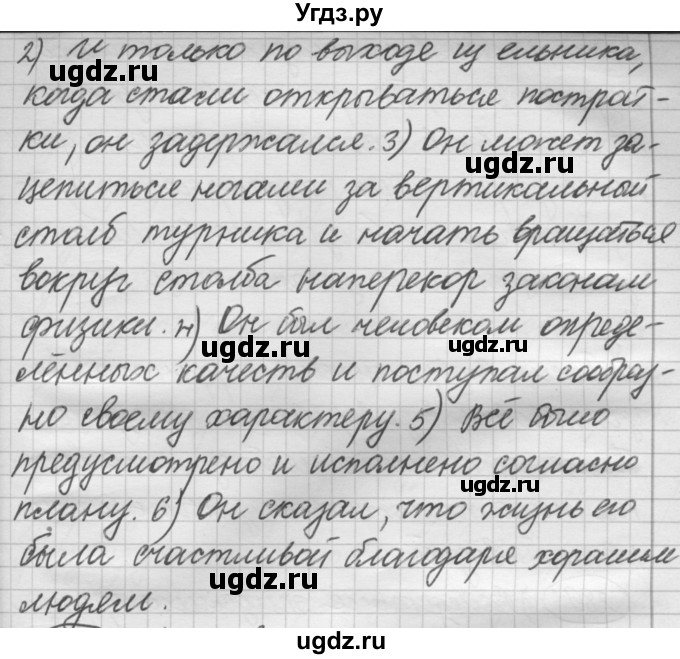 Угдз.ру
2) И только по выходе из ельника,
ugdz.ru
когда стали открываться построй-
ки, он задержался. 3) Он может за-
ugdz.ru
цепиться ногами за вертикальной
столб турника и начать вращаться
вокруг столба наперекор законам
физики. 4) Он был человеком опреде-
ugdz.ru ugdz.ru
лённых качеств и поступал сообраз-
но своему характеру. 5) Всё было
предусмотрено и исполнено согласно
ugdz.ru
плану. 6) Он сказал, что жизнь его
была счастливой благодаря хорошим
ugdz.ru
людям.
ugdz.ru